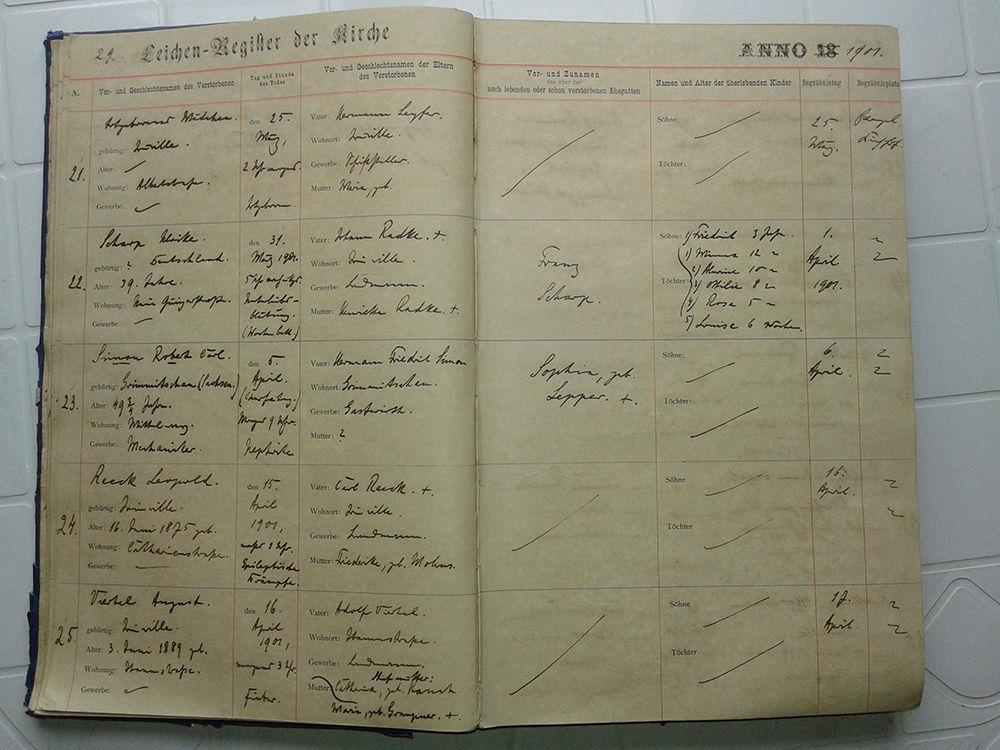 29. Leichen-Register der Kirche
ANNO 18 1901.
N. Vor- und Geschlechtsnamen des Verstorbenen
Tag und Stunde des Todes
Vor- und Geschlechtsnamen der Eltern des Verstorbenen
Vor- und Zunamen
des oder der
noch lebenden oder schon verstorbenen Ehegatten
Namen und Alter der überlebenden Kinder
Begräbnistag
Begräbnisplatz
21.
Mädchen.
gebürtig: Joinville.
Alter:
Wohnung:
Gewerbe:
den 25.
März,
2 Uhr
Vater: Hermann
Wohnort: Joinville.
Gewerbe:
Mutter: Maria, geb.
Söhne:
Töchter:
25.
März.
22.
Scharp Ulrike.
gebürtig: ? Deutschland.
Alter: 39. Jahre.
Wohnung:
Gewerbe:
den 31.
März 1901.
5 Uhr
(Wochenbett.)
Vater: Johann Radke. +.
Wohnort: Joinville.
Gewerbe: Landmann.
Mutter: Henriette Radke. +.
Franz
Scharp.
Söhne: 1) Friedrich 3 Jahr.
1) Minna 12 "
2) 10 "
Töchter: 3) Ottilie 8 "
4) Rosa 5 "
5) Louise 6 Wochen.
1.
April
1901.
23.
Simon Robert Carl.
gebürtig: (Sachsen.)
Alter: 49 3/4 Jahr.
Wohnung:
Gewerbe: Mechaniker.
den 5.
April.
(Charfreitag.)
Morgens 9 Uhr.
Nephritis
Vater: Hermann Friedrich Simon
Wohnort:
Gewerbe: Gastwirth.
Mutter: ?
Sophia, geb.
Lepper. +.
Söhne:
Töchter:
6.
April.
24.
Reeck Leopold.
gebürtig: Joinville.
Alter: 16. Juni 1875 geb.
Wohnung: Catharinenstraße.
Gewerbe:
den 15.
April
1901,
3 Uhr.
Epileptische
Krämpfe.
Vater: Carl Reeck. +.
Wohnort: Joinville.
Gewerbe: Landmann.
Mutter: Friederike, geb. Mohns.
Söhne
Töchter
15.
April.
25.
Viertel August.
gebürtig: Joinville.
Alter: 3. Juni 1889 geb.
Wohnung:
Gewerbe:
den 16.
April
1901,
morgens 3 Uhr.
Fieber.
Vater: Adolf Viertel.
Wohnort:
Gewerbe: Landmann.
Stiefmutter:
Mutter: Catharina, geb.
Maria, geb. Graupner. +.
Söhne
Töchter
17.
April